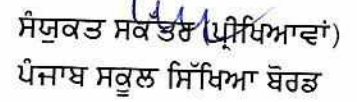 ਸੰਯੁਕਤ ਸਕੱਤਰ (ਪ੍ਰੀਖਿਆਵਾਂ)
ਪੰਜਾਬ ਸਕੂਲ ਸਿੱਖਿਆ ਬੋਰਡ